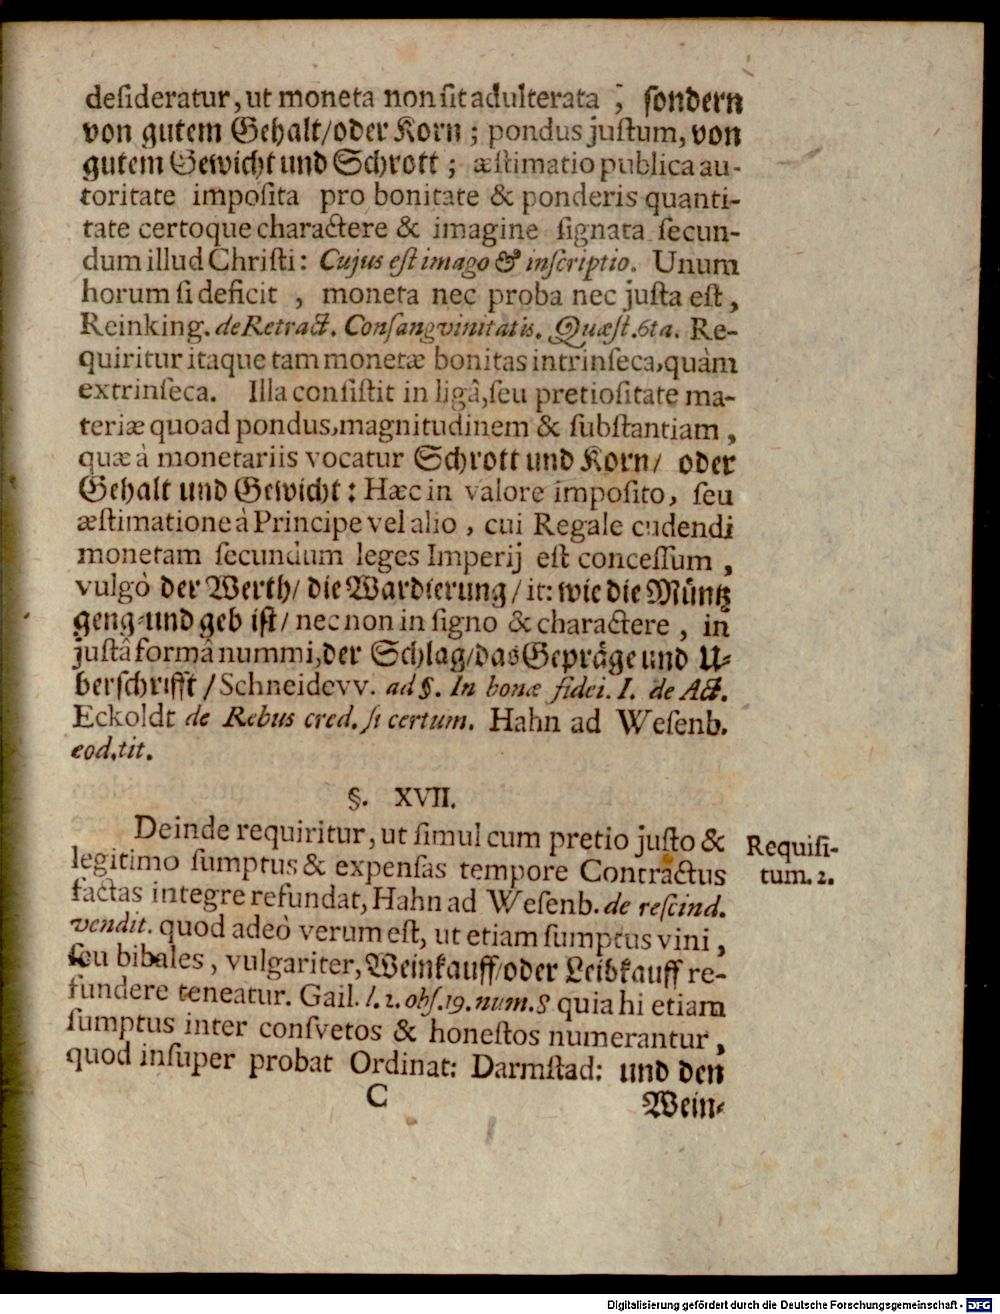 deſideratur, ut moneta non ſit adulterata , ſondern
von gutem Gehalt/oder Korn ; pondus juſtum, von
gutem Gewicht und Schrott ; æſtimatio publica au-
toritate impoſita pro bonitate & ponderis quanti-
tate certoque charactere & imagine ſignata ſecun-
dum illud Chriſti: Cujus eſt imago & inſcriptio. Unum
horum ſi deficit , moneta nec proba nec juſta eſt,
Reinking. de Retract. Conſangvinitatis. Quæſt. 6ta. Re-
quiritur itaque tam monetæ bonitas intrinſeca, quàm
extrinſeca. Illa conſiſtit in ligâ, ſeu pretioſitate ma-
teriæ quoad pondus, magnitudinem & ſubſtantiam ,
quæ à monetariis vocatur Schrott und Korn/ oder
Gehalt und Gewicht: Hæc in valore impoſito, ſeu
æſtimatione à Principe vel alio , cui Regale cudendi
monetam ſecundum leges Imperij eſt conceſſum ,
vulgò der Werth/ die Wardierung/ it: wie die Müntz
geng-und geb iſt/ nec non in ſigno & charactere , in
juſtâ formâ nummi, der Schlag/das Gepräge und U-
berſchrifft/ Schneidevv. ad §. In bonæ fidei. I. de Act.
Eckoldt de Rebus cred. ſi certum. Hahn ad Weſenb.
eod. tit.
§. XVII.
Deinde requiritur, ut ſimul cum pretio juſto &
legitimo ſumptus & expenſas tempore Contractus
factas integre refundat, Hahn ad Weſenb. de reſcind.
vendit. quod adeò verum eſt, ut etiam ſumptus vini ,
ſeu bibales , vulgariter, Weinkauff/oder Leibkauff re-
fundere teneatur. Gail. l. 2. obſ. 19. num. 8 quia hi etiam
ſumptus inter conſvetos & honeſtos numerantur ,
quod inſuper probat Ordinat: Darmſtad: und den
C
Wein-
Requiſi-
tum. 2.
Digitalisierung gefördert durch die Deutsche Forschungsgemeinschaft - DFG